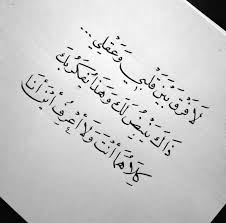 لَا فَرْقَ بَيْنَ قَلْبِي وَعَقْلِي...
ذَاكَ يَنْبِضُ لَكَ وَهَذَا يُفَكِّرُ بِكَ
كِلَاهُمَا أَنْتَ وَلَا أَعْرِفُ أَيْنَ أَنَا